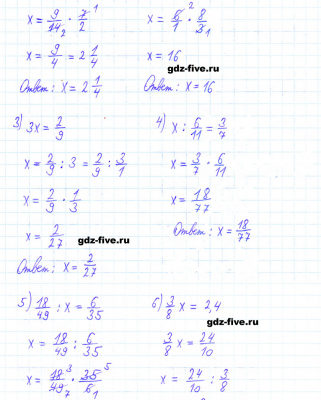 x = 9/14₂ · 7/2 ¹
x = 9/4 = 2 1/4
Ответ: x = 2 1/4
x = 6/1 ² · 8/3₁
x = 16
gdz-five.ru
Ответ: x = 16
3) 3x = 2/9
x = 2/9 : 3 = 2/9 : 3/1
x = 2/9 · 1/3
x = 2/27
gdz-five.ru
Ответ: x = 2/27
4) x : 6/11 = 3/7
x = 3/7 · 6/11
x = 18/77
Ответ: x = 18/77
5) 18/49 : x = 6/35
x = 18/49 : 6/35
x = 18/49 ³₇ · 35/6 ⁵₁
6) 3/8 x = 2,4
gdz-five.ru
3/8 x = 24/10
x = 24/10 : 3/8